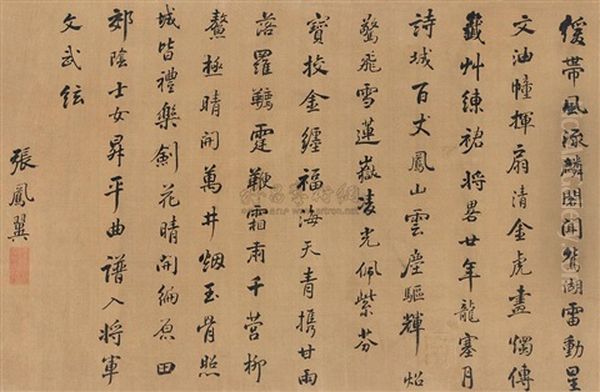 緩帶風流麟閣聞鴛湖雷動星
文油幢揮扇清金虎畫燭傳
籤艸練裙將畧廿年龍塞月
詩城百丈鳳山雲塵驅輝
驚飛雪蓮嶽凌光佩紫芬
寶校金纏福海天青攜甘雨
落羅韉霆鞭霜肅千營柳
鰲極晴開萬井烟玉脊照
城皆禮樂劍花晴開徧原田
郊陰士女昇平曲譜入將軍
文武絃
張鳳翼